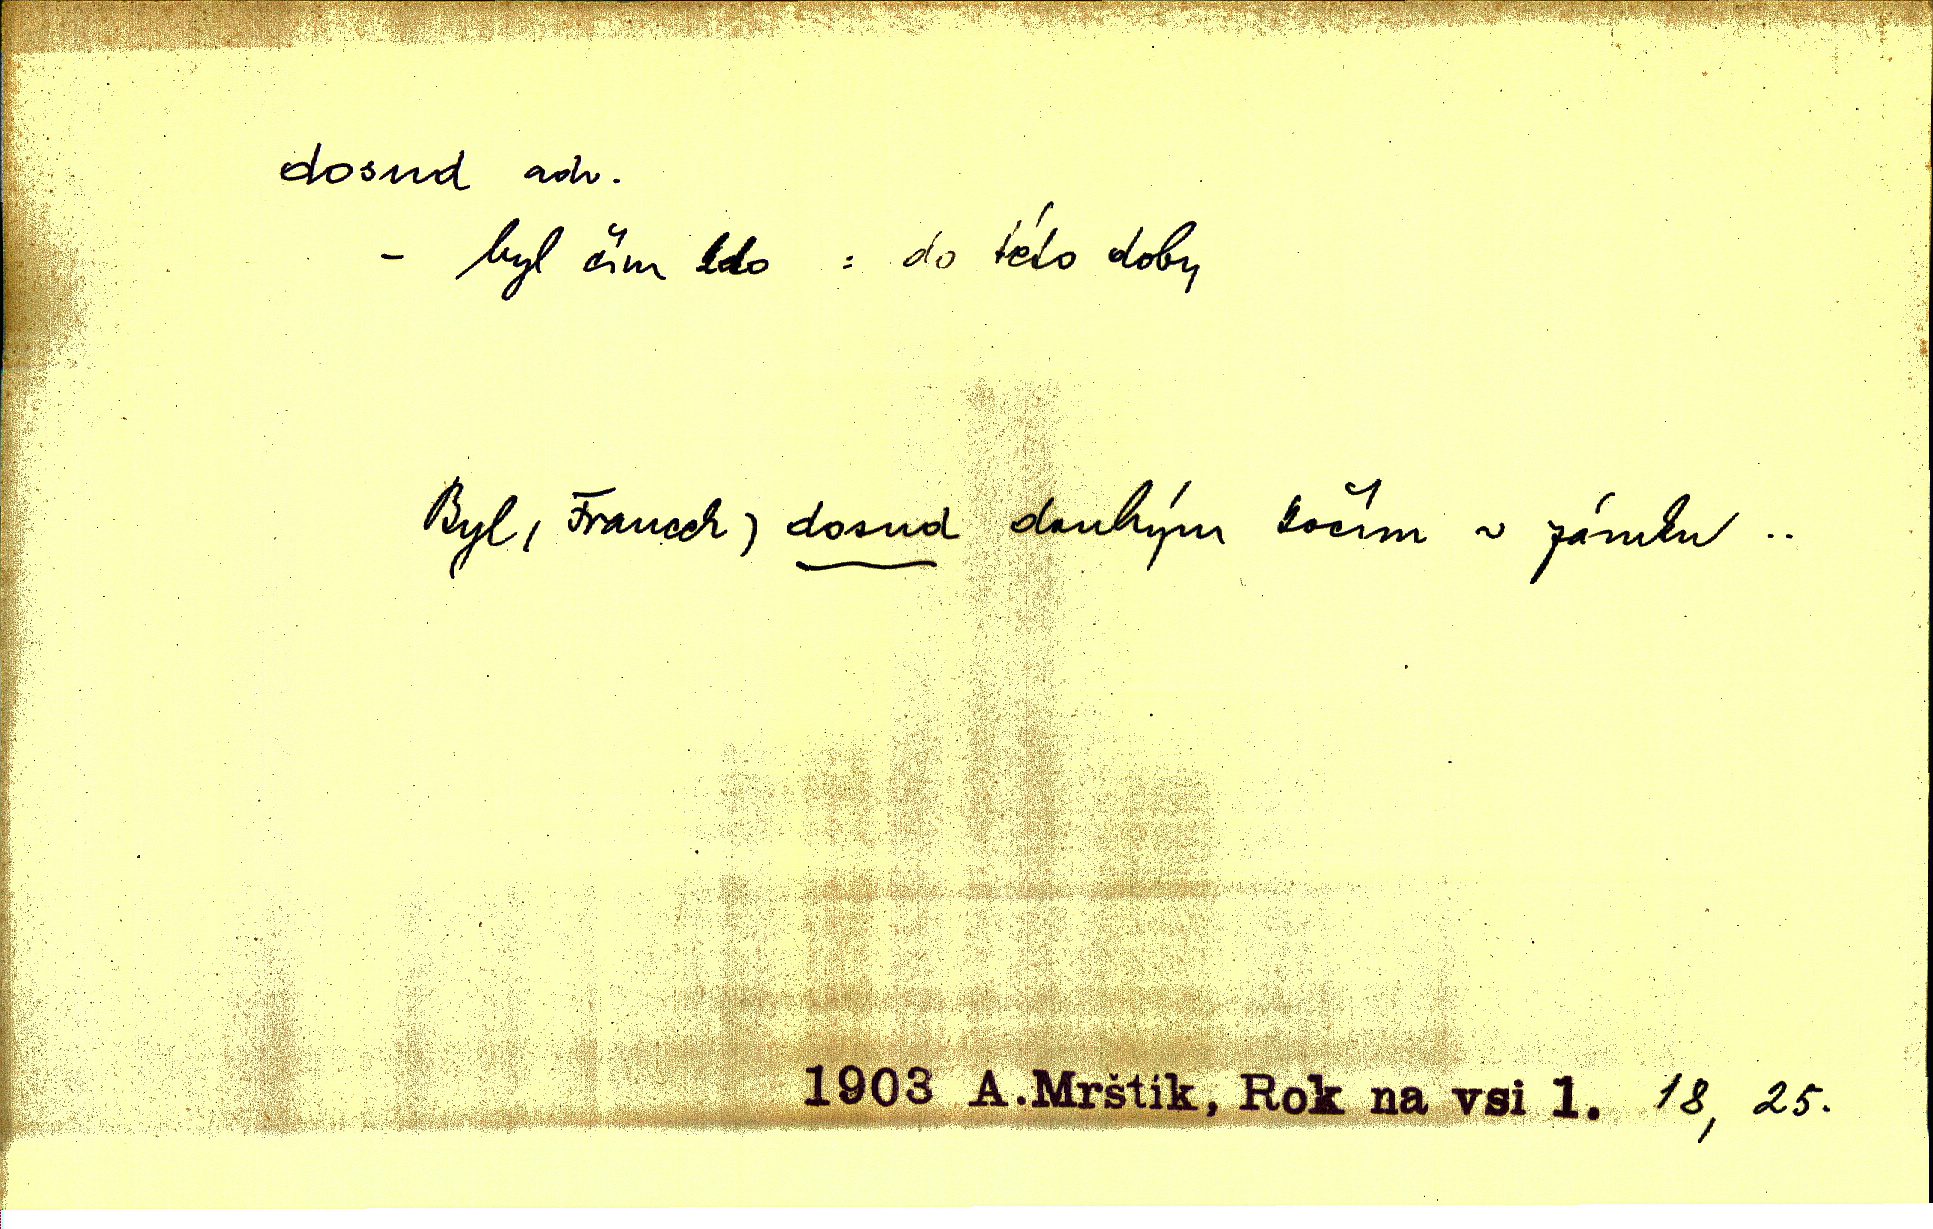 dosud adv.
- byl čím kdo : do této doby
Byl (Francek) dosud druhým kočím v zámku ..
1903 A.Mrštík, Rok na vsi 1. 18, 25.